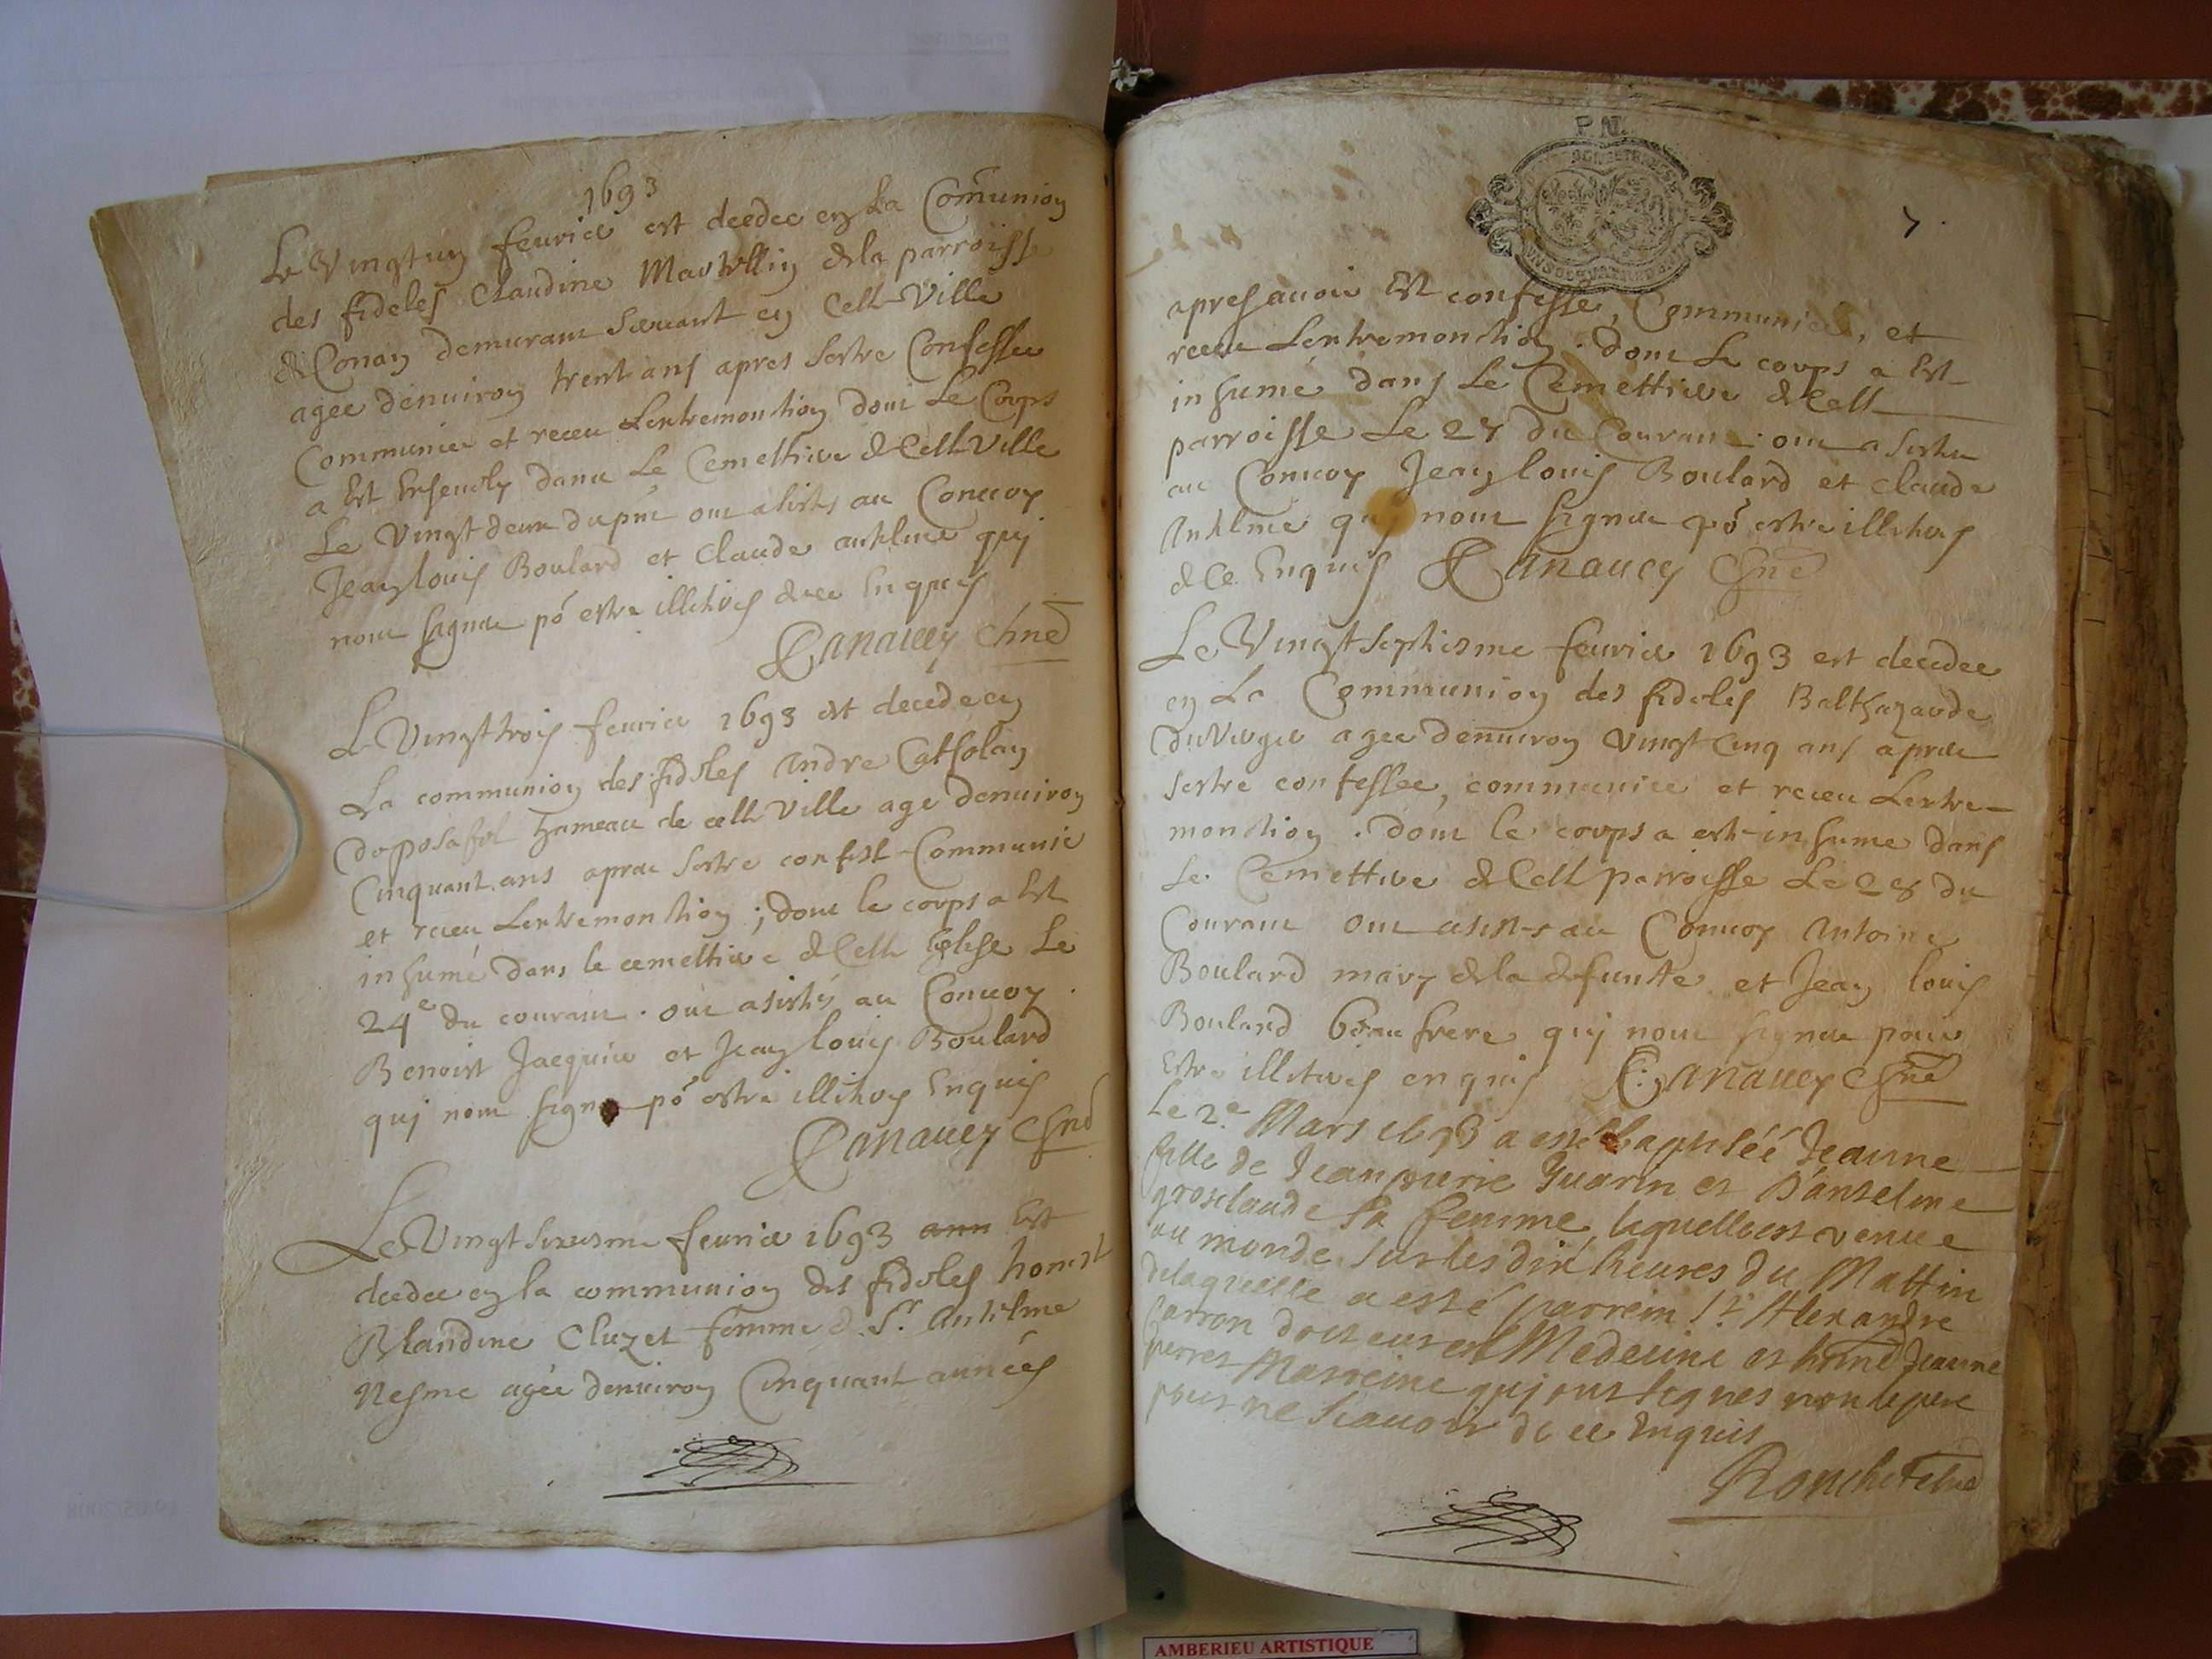 1693
Le Vingt un feurier est decedee en La Communion
des fideles Claudine Martellin de la parroisse
de Conan demurant seruant en Cette Ville
agee denuiron trente ans apres sestre Confessee
Communiee et receu Lextremonction dont Le Corps
a Est Enseuely dans Le Cemettiere de Cette Ville
Le Vingt deux du pnt ont asistes au Conuoy
Jean louis Boulard et Claude anthelme quj
nont signer po estre illitires de ce Enquis
Canauey
Le Vingt trois feurier 1693 est decede en
La communion des fideles Andre Catholan
hameau de cette Ville age denuiron
Cinquant ans apres sestre confesse Communie
et receu Lextremonction ; dont le corps a Est
inhumé dans le cemettiere de Cette Eglise Le
24e du courant . ont asistés au Conuoy .
Benoist Jacquier et Jean louis Boulard
quj nont signe po estre illitires Enquis
Canauey
Le Vingt sixiesme feurier 1693 est
decedee en la communion des fideles honeste
Blandine Cluzet femme de Sr. Anthelme
Nesme agée denuiron Cinquant années
P. N.
7
apres auoir Est confesse, Communiee, et
receu Lextremonction . dont Le corps a Est
inhumé dans Le Cemettiere de Cette
parroisse Le 27 du Courant ont asistes
au Conuoy Jean louis Boulard et Claude
Anthelme quj nont signer po estre illitires
de Ce Enquis Canauey
Le Vingt septiesme feurier 1693 est decedee
en La Communion des fideles Balthazarde
DuVerger agee denuiron Vingt Cinq ans apres
sestre confessee, communiee et receu Lextre-
monction . dont le corps a este inhume dans
Le Cemettiere de Cette parroisse Le 28 du
Courant ont asistes au Conuoy Antoine
Boulard mary de la defunte et Jean louis
Boulard beau frere quj nont signer pour
Estre illitires enquis Canauey
Le 2e Mars 1693 a esté baptiséé Jeanne
fille de Jean Guarin et D'anselme
grosclaude sa femme, laquelle est venue
au monde sur les dix heures du Mattin
delaquelle a esté parrein Sr. Alexandre
Carron docteur en Medecine et Jeanne
perret Marreine quj ont signes non le pere
pour ne scauoir de ce Enquis
AMBERIEU ARTISTIQUE